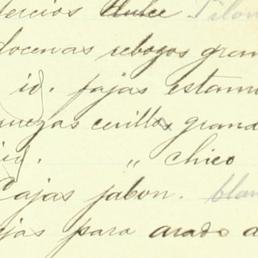 tercios dulce Pilon
docenas rebozos gran
id. fajas estam
gruezas cerillos grand
id. " chico
Cajas jabon. blan
ejas para arado a